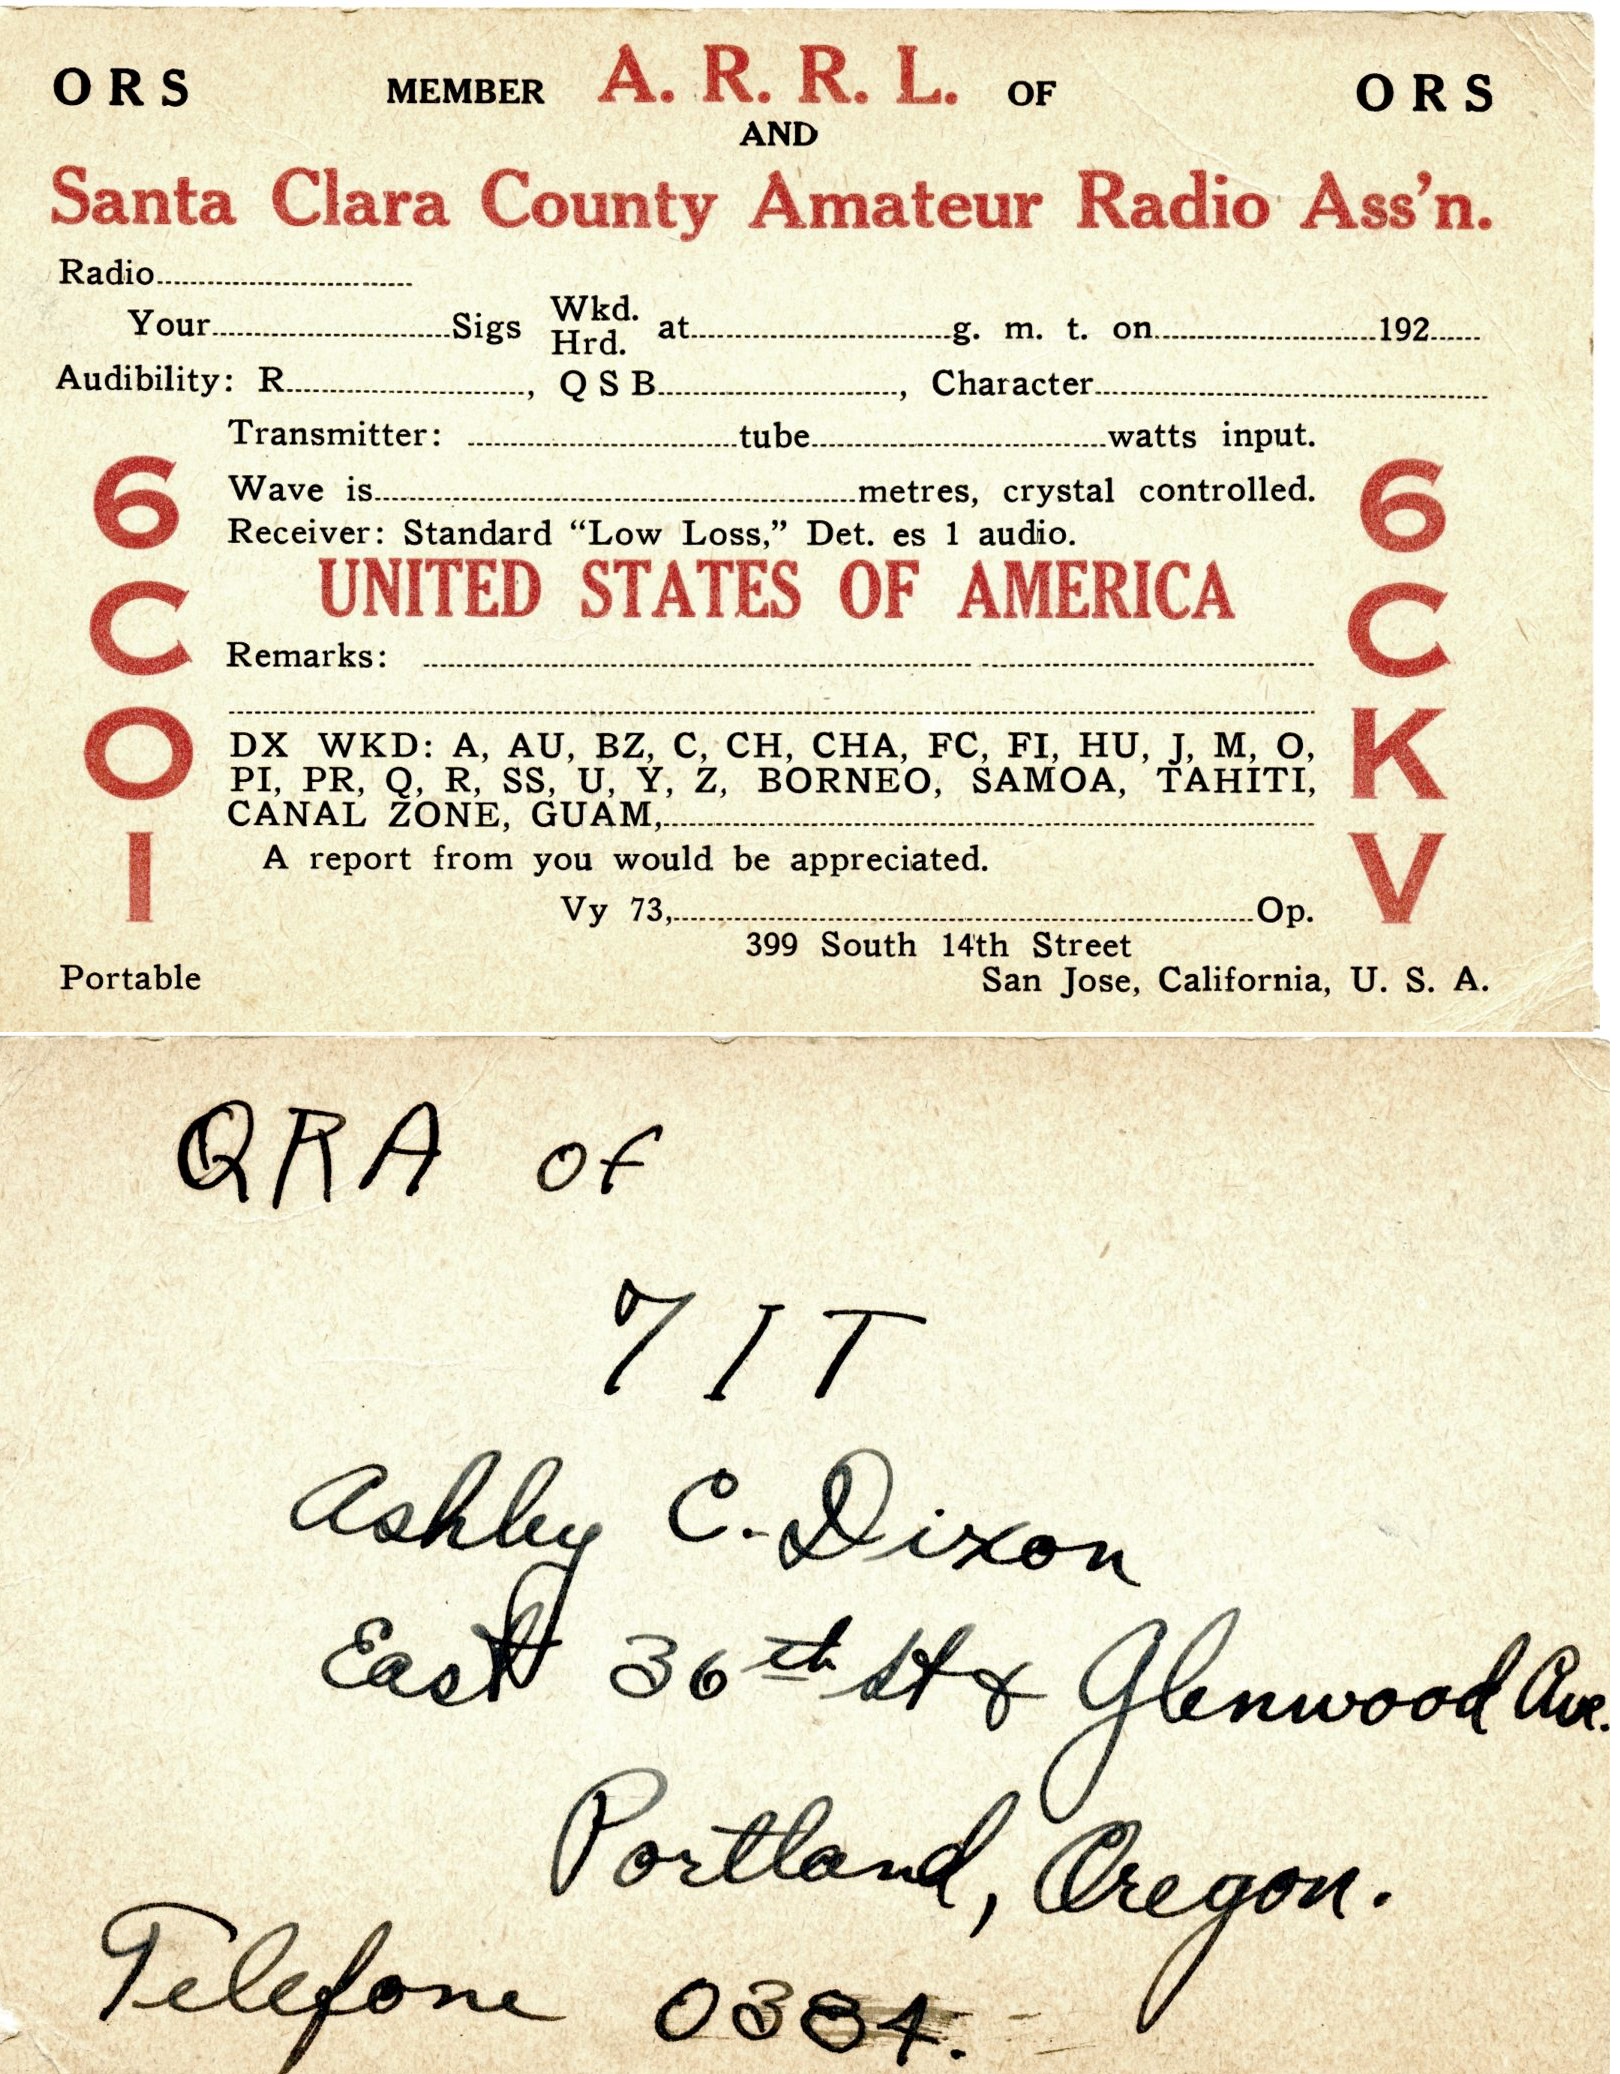 ORS MEMBER A. R. R. L. OF ORS
AND
Santa Clara County Amateur Radio Ass'n.
Radio
Your Sigs Wkd. Hrd. at g. m. t. on 192
Audibility: R , QSB , Character
Transmitter: tube watts input.
Wave is metres, crystal controlled.
Receiver: Standard “Low Loss,” Det. es 1 audio.
UNITED STATES OF AMERICA
Remarks:
DX WKD: A, AU, BZ, C, CH, CHA, FC, FI, HU, J, M, O,
PI, PR, Q, R, SS, U, Y, Z, BORNEO, SAMOA, TAHITI,
CANAL ZONE, GUAM,
A report from you would be appreciated.
Vy 73, Op.
399 South 14th Street
Portable San Jose, California, U. S. A.
6
C
O
I
6
C
K
V
QRA of
7IT
Ashley C. Dixon
East 36th St & Glenwood Ave.
Portland, Oregon.
Telefone 0384.